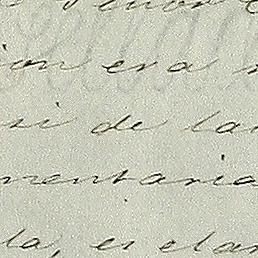 ion era
si de la
mentaria
la, es clar